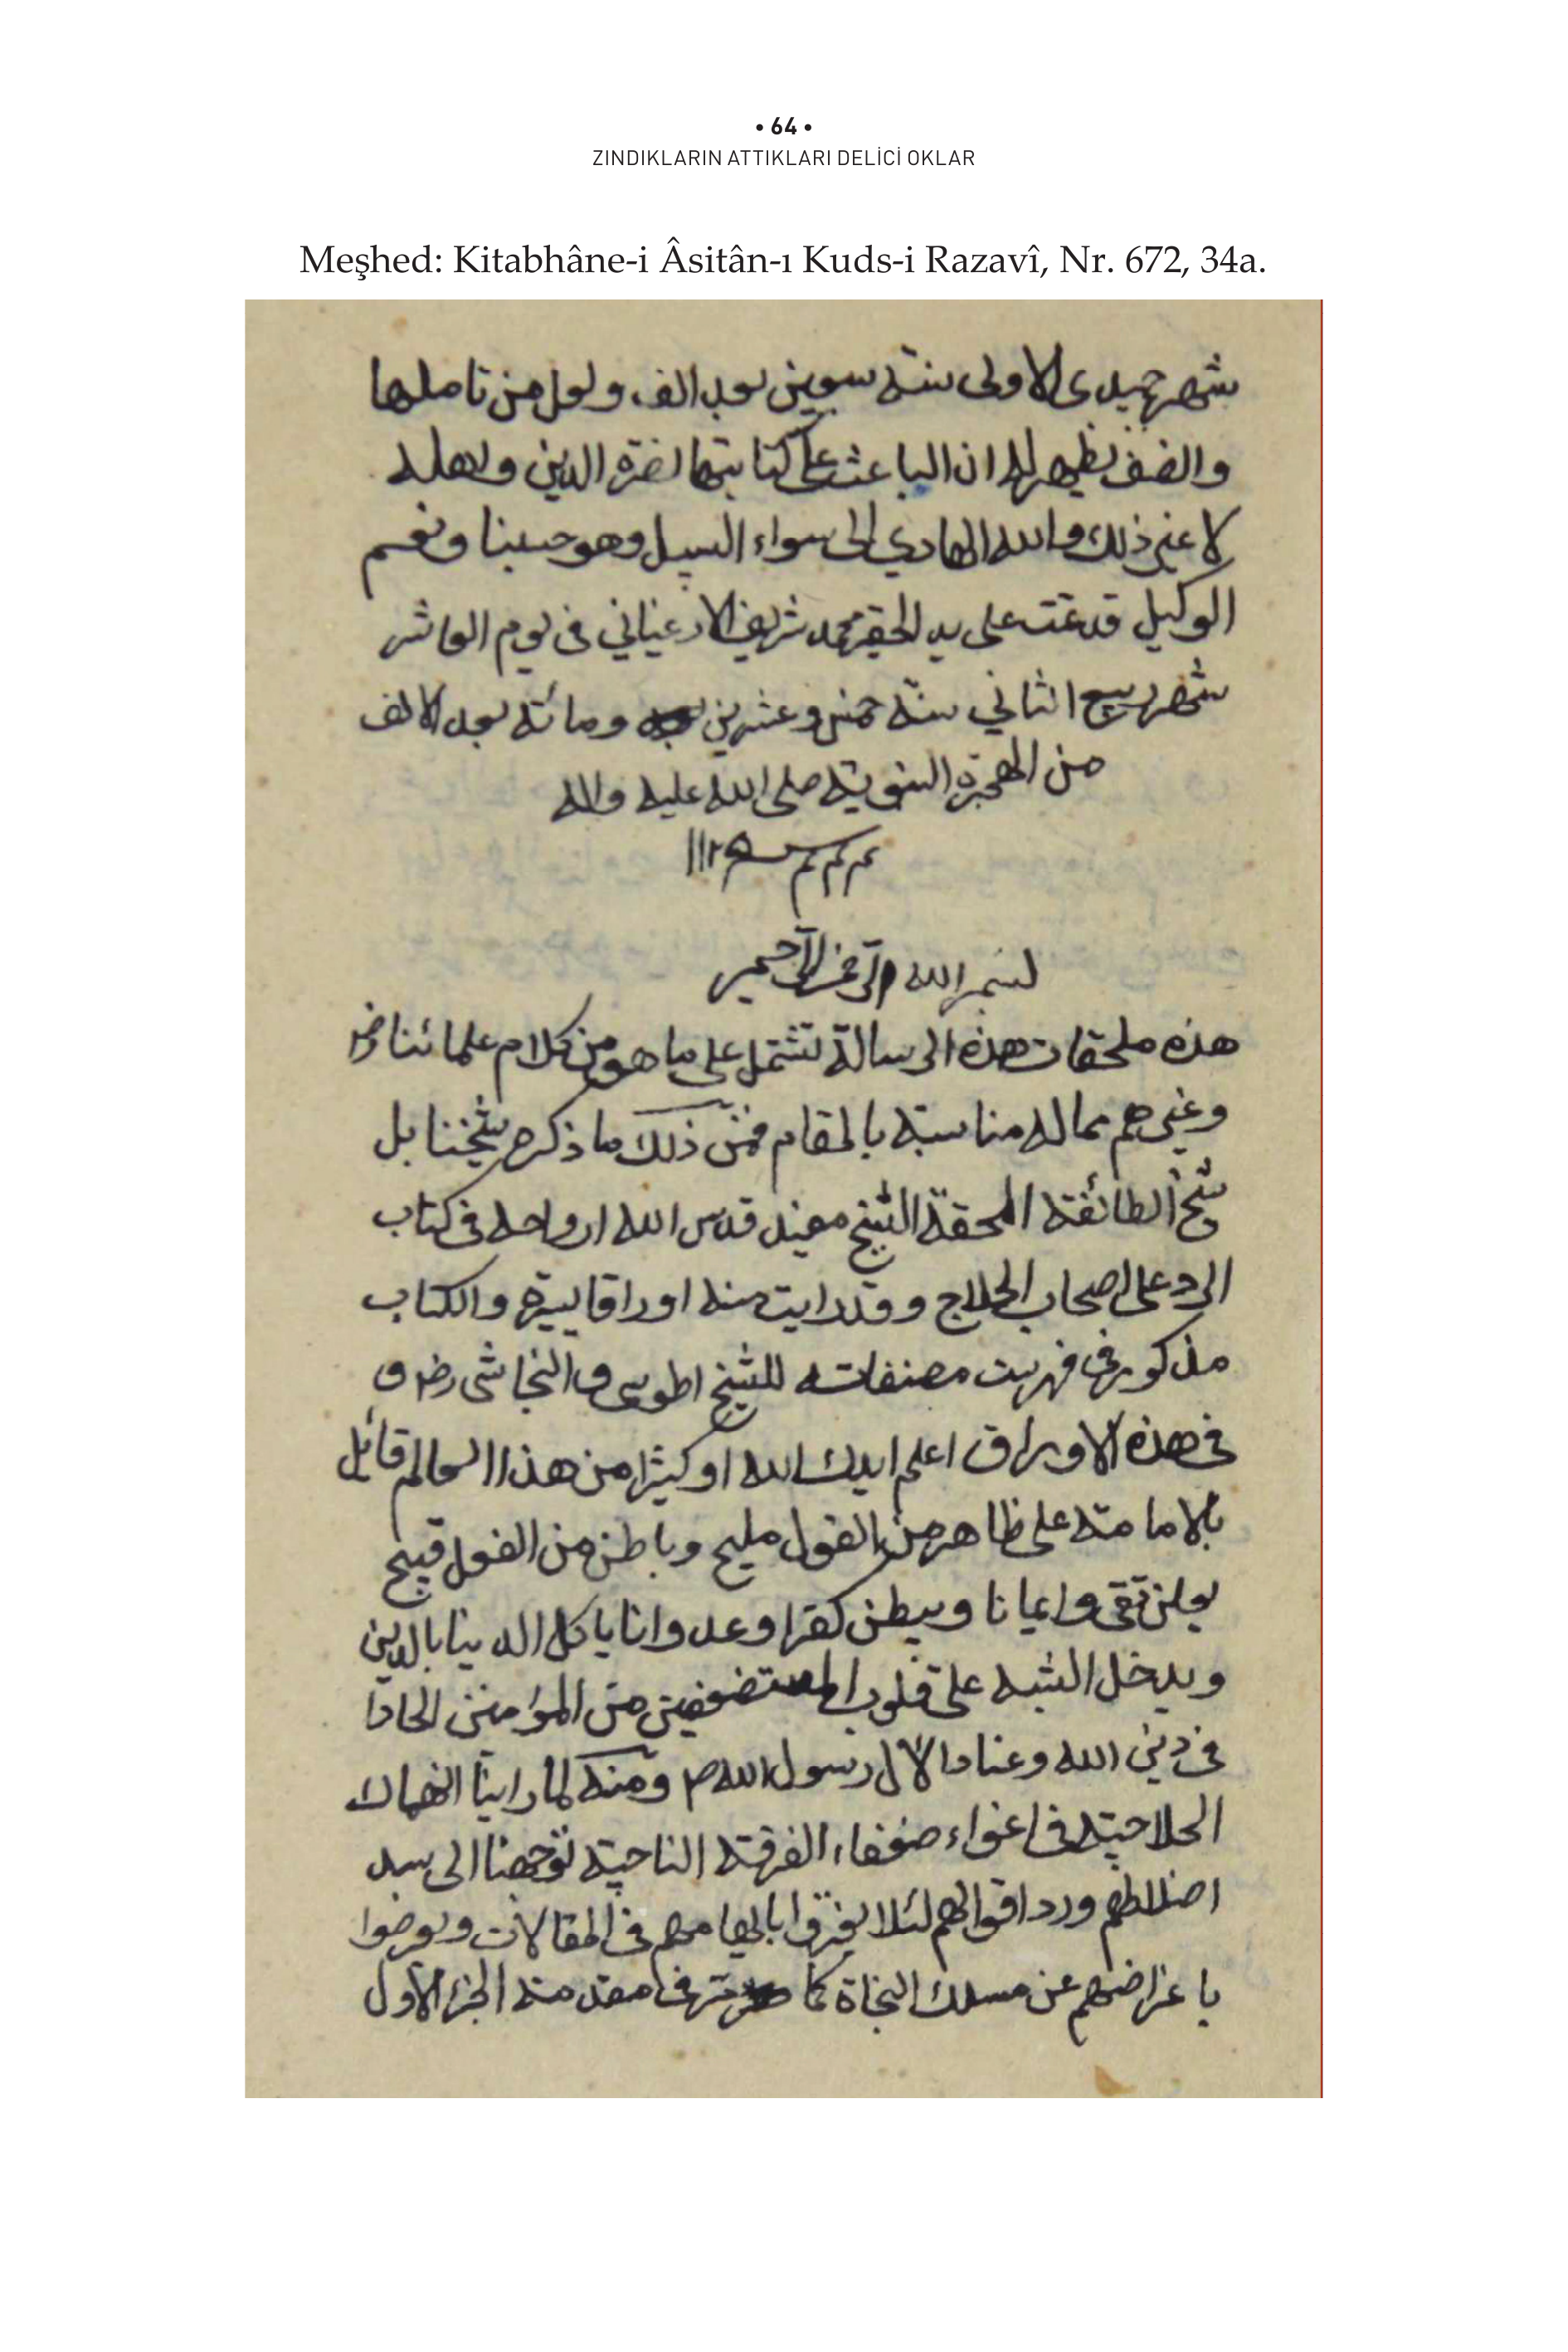 • 64 •
ZINDIKLARIN ATTIKLARI DELİCİ OKLAR
Meşhed: Kitabhâne-i Âsitân-ı Kuds-i Razavî, Nr. 672, 34a.
شهر جميدى الاولى سنة سبعين بعد الف ولعل من تاملها
والضف يظهر له ان الباعث على كتابتها نضرة الدين ولاهله
لا غير ذلك والله الهادي الى سواء السبيل وهو حسبنا ونعم
الوكيل قد تمت على يد الحقير محمد شريف الارغياني فى يوم العاشر
شهر ربيع الثاني سنة خمس وعشرين ومائة بعد الالف
من الهجرة النبوية صلى الله عليه واله
١١٢٥
بسم الله الرحمن الرحيم
هذه ملحقات هذه الرسالة تشتمل على ما هو من كلام علمائنا رض
وغيرهم مما له مناسبة بالمقام فمن ذلك ما ذكره شيخنا بل
شيخ الطائفة المحقة الشيخ مفيد قدس الله ارواحه فى كتاب
الرد على اصحاب الحلاج وقد رايت منه اوراقا يسيرة والكتاب
مذكور فى فهرست مصنفاته للشيخ اطوسى والنجاشى رض و
فى هذه الاوراق اعلم ايدك الله او كثيرا من هذا العالم قائل
بالامامة على ظاهر من القول مليح وباطن من القول قبيح
يعلن تقى وايمانا ويبطن كفرا وعدوانا ياكل الدينا بالدين
ويدخل الشبه على قلوب المستضعفين من المؤمنين الحادا
فى دين الله وعنادا لال رسول الله ص ومنه لما راينا انهماك
الحلاجية فى اغواء ضعفاء الفرقة الناجية توجهنا الى سد
اضلالهم ورد اقوالهم لئلا يغتروا بايهامهم فى المقالات ويعرضوا
باعراضهم عن مسلك النجاة كما مر فى مقدمة الجزء الاول